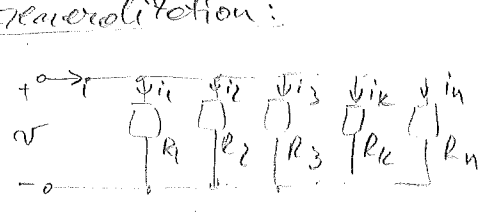 generalization:
+ i i1 i2 i3 ik in
v R1 R2 R3 Rk Rn
-